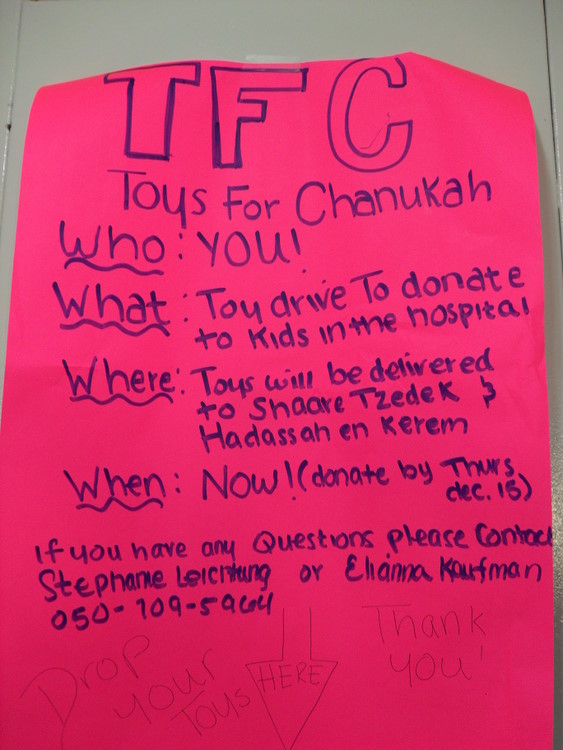 TFC
Toys For Chanukah
Who: YOU!
What: Toy drive To donate
to kids in the hospital
Where: Toys will be delivered
to Shaare Tzedek &
Hadassah en Kerem
When: NOW! (donate by Thurs.
dec. 15)
If you have any Questions please Contact
Stephanie or Elianna Kaufman
050-709-5964
Drop
your
Toys
HERE
Thank
you!